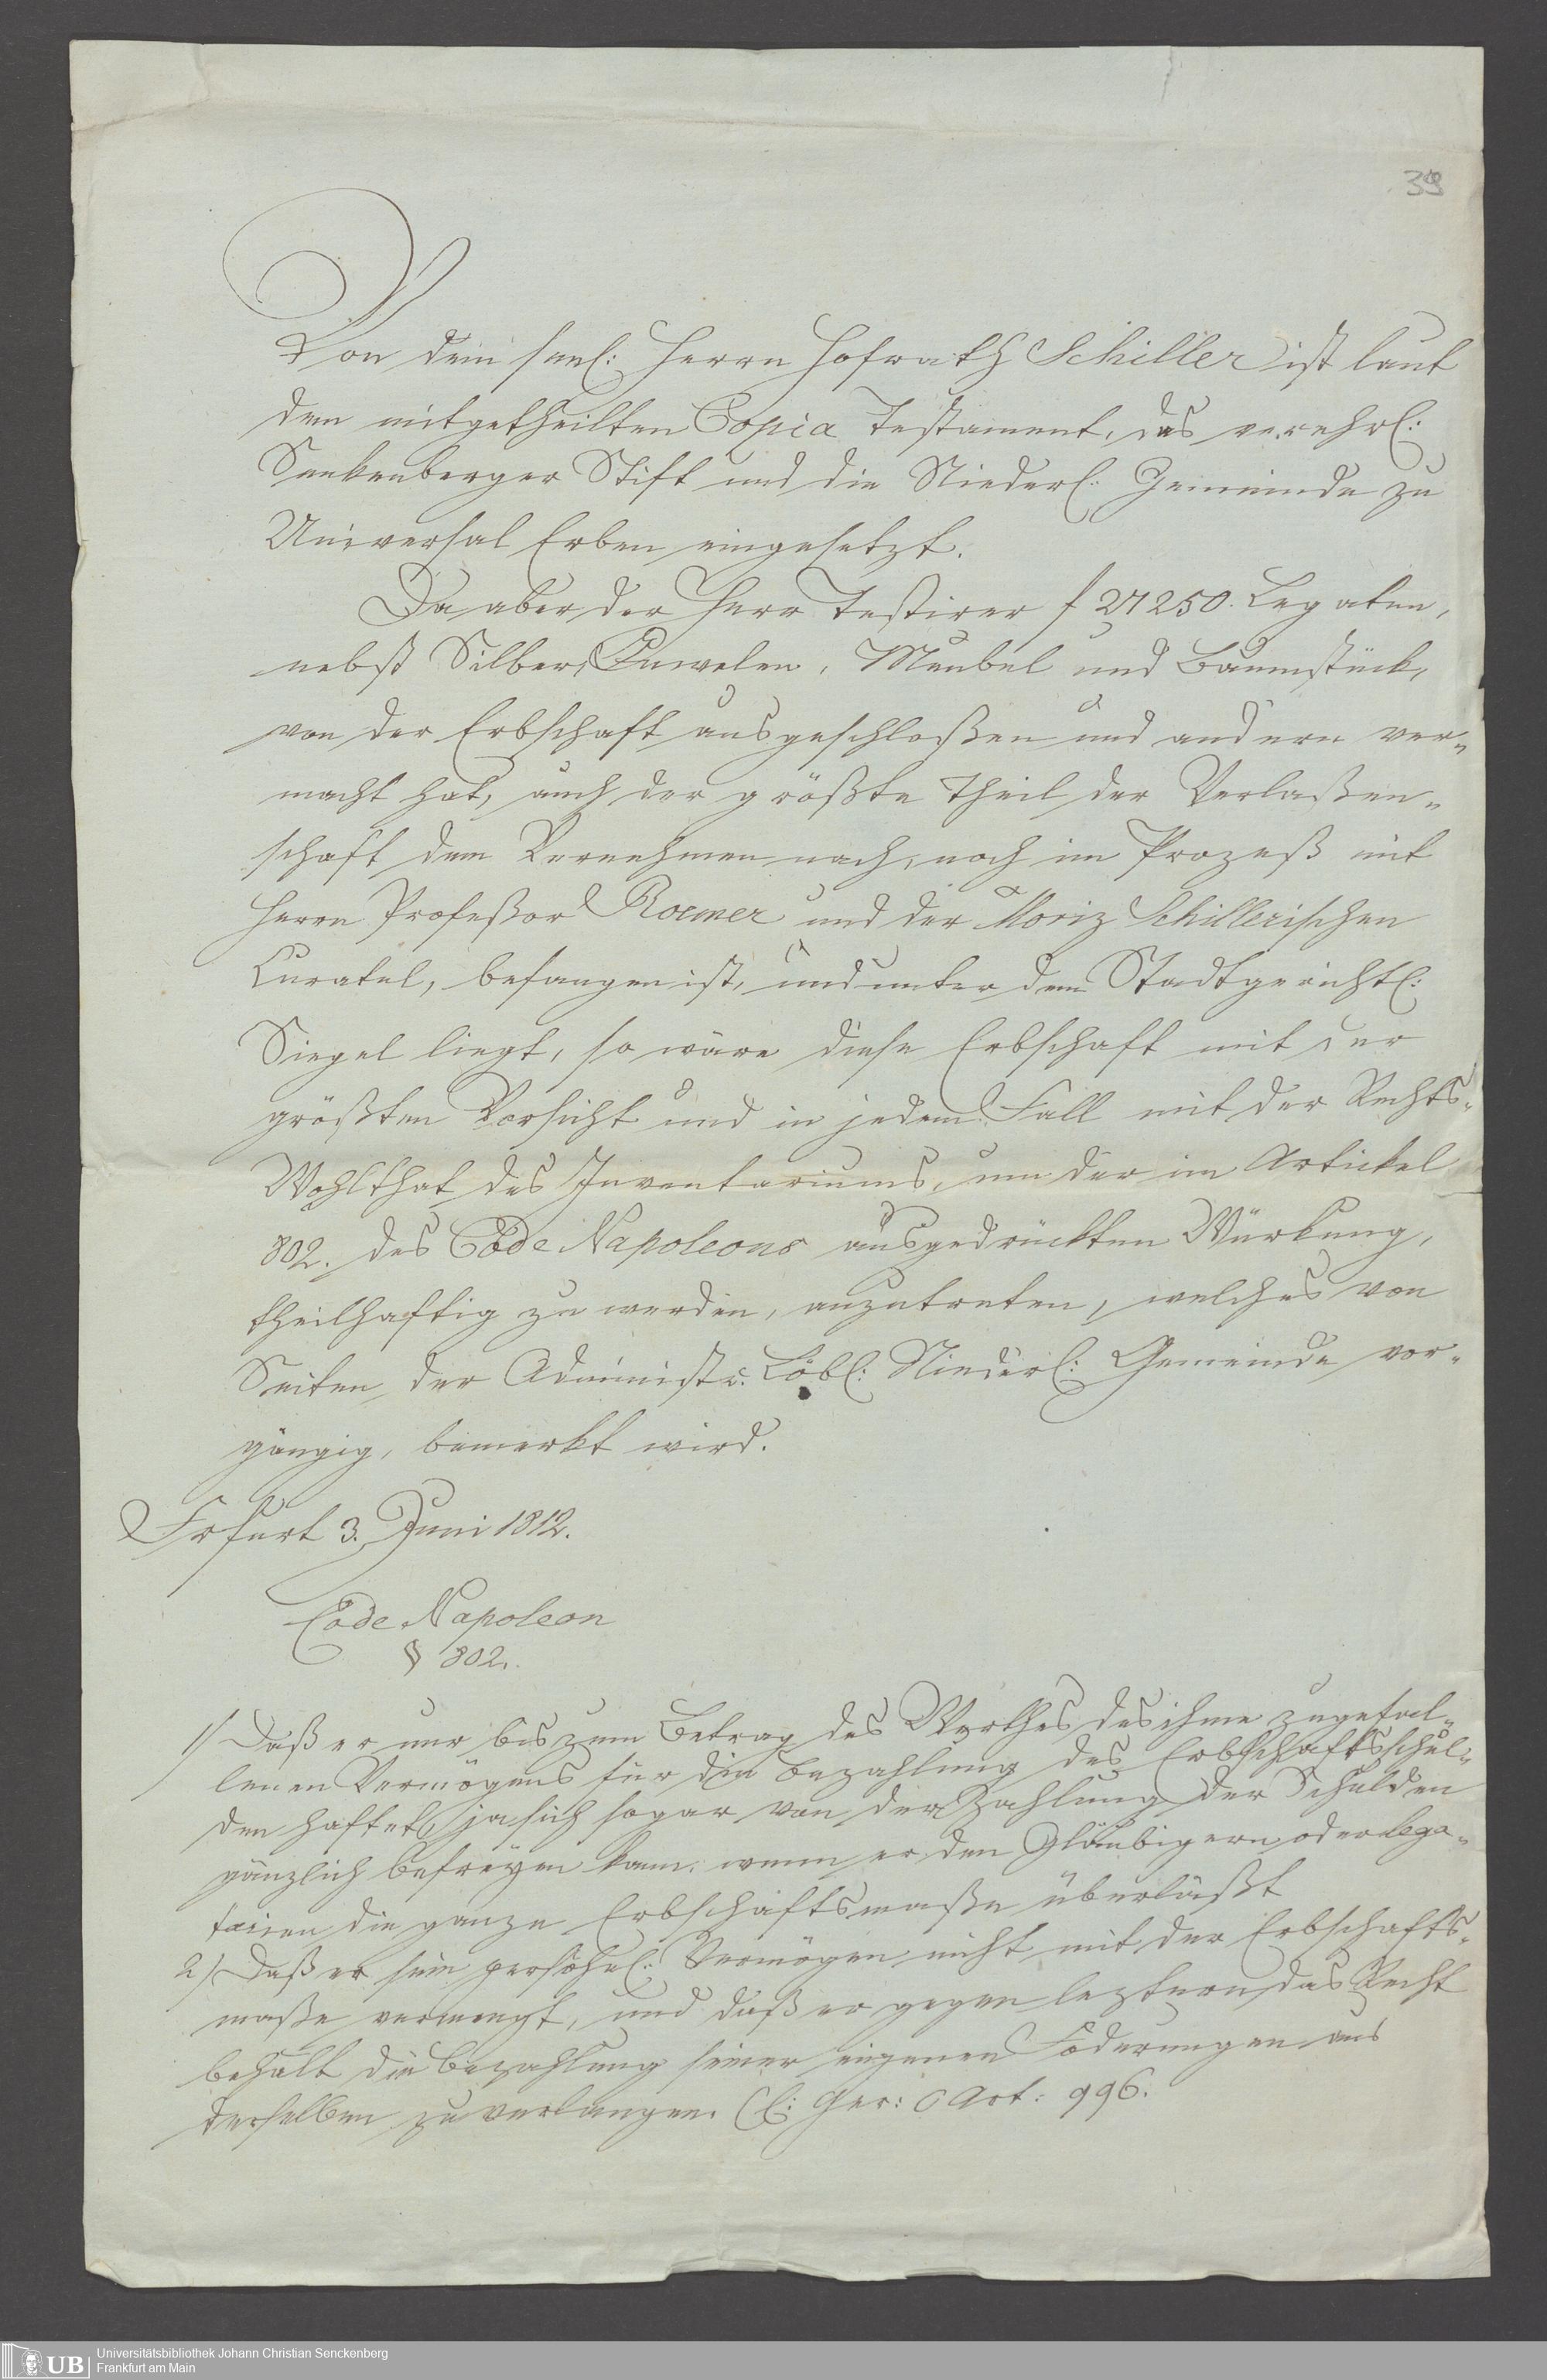 39
Von dem seel: Herrn Hofrath Schiller ist laut
dem mitgetheilten Copia Testament, das verehrl:
Senkenberger Stift und die Niederl: Gemeinde zu
Universal Erben eingesetzt.
Da aber der Herr Testirer f 27250. Legaten,
nebst Silber, Juwelen, Meubel und Baumstück,
von der Erbschaft ausgeschloßen und andern ver=
macht hat, auch der größte Theil der Verlaßen=
schaft dem Vernehmen nach, noch im Prozeß mit
Herrn Profeßor Roemer und der Moriz Schillerischen
Curatel, befangen ist, und unter dem Stadtgerichtl:
Siegel liegt, so wäre diese Erbschaft mit der
größten Vorsicht und in jedem Fall mit der Rechts=
Wohlthat des Inventariums, um der im Artickel
802. des Code Napoleons ausgedrückten Würkung,
theilhaftig zu werden, anzutreten, welches von
Seiten der Administr. Löbl: Niederl: Gemeinde vor=
gängig, bemerkt wird.
Frfurt 3. Juni 1812.
Code Napoleon
§ 802.
1/ Daß er nur bis zum Betrag des Werthes des ihme zugefal=
lenen Vermögens für die Bezahlung des Erbschaftsschul=
den haftet, ja sich sogar von der Zahlung der Schulden
gänzlich befreyen kann, wenn er den Gläubigern oder lega=
tarien die ganze Erbschaftsmaße überläßt
2/ Daß er sein persöhnl: Vermögen nicht mit der Erbschafts=
maße vermengt, und daß er gegen leztern das Recht
behält die Bezahlung seiner eigenen Foderungen aus
derselben zu verlangen. Ger: Art: 996.
UB
Universitätsbibliothek Johann Christian Senckenberg
Frankfurt am Main